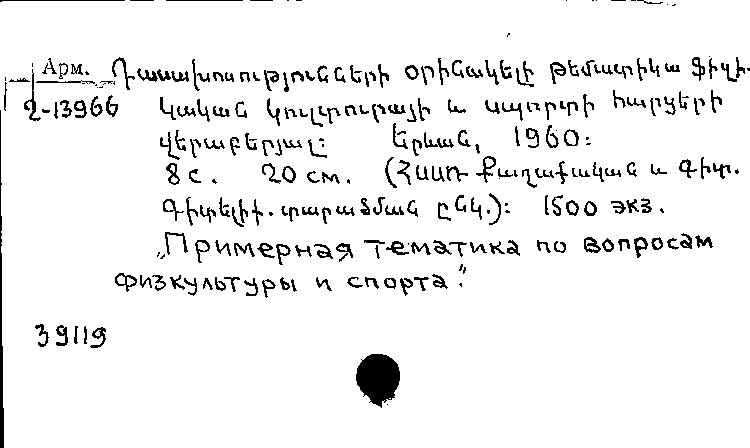 Арм. Դասախոսությունների օրինակելի թեմատիկա ֆիզի-
2-13966 կական կուլտուրայի և սպորտի հարցերի
վերաբերյալ: Երևան, 1960:
8 с. 20 см. (ՀՍՍՌ Քաղաքական և Գիտ.
Գիտելիք. տարածման ընկ.): 1500 экз.
„Примерная тематика по вопросам
физкультуры и спорта."
39119